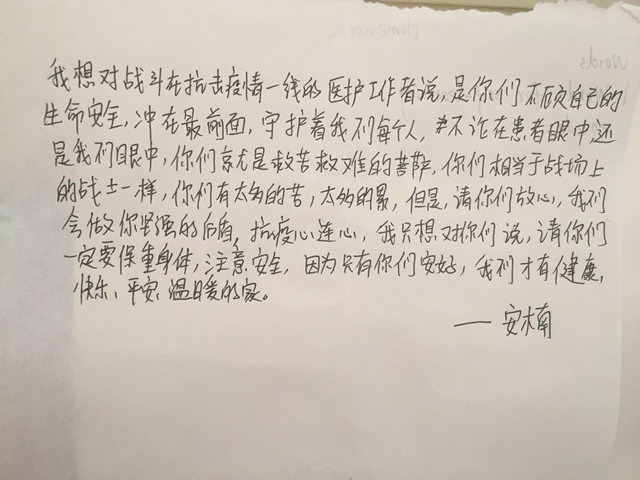 我想对战斗在抗击疫情一线的医护工作者说，是你们不顾自己的
生命安全，冲在最前面，守护着我们每个人，不论在患者眼中，还
是我们眼中，你们就是救苦救难的菩萨，你们相当于战场上
的战士一样，你们有太多的苦，太多的累，但是，请你们放心，我们
会做你坚强的后盾，抗疫心连心，我只想对你们说，请你们
一定要保重身体，注意安全，因为只有你们安好，我们才有健康、
快乐、平安、温暖的家。
——安楠
Homework
Words